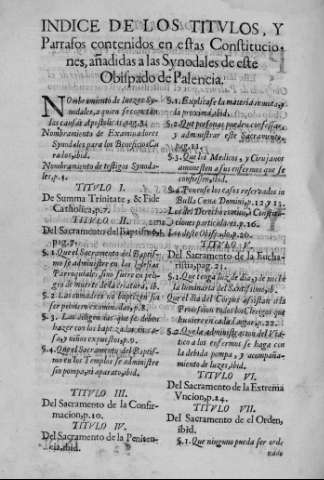 INDICE DE LOS TITVLOS, Y
Parrafos contenidos en estas Constitucio-
nes, añadidas a las Synodales de este
Obispado de Palencia.
NOmbramiento de Iuezes Sy-
nodales, a quien se cometen
las causas Apostolicas, pag.3.
Nombramiento de Examinadores
Synodales para los Beneficios Cu-
rados, ibid.
Nombramiento de testigos Synoda-
les, p.4.
TITVLO I.
De Summa Trinitate, & Fide
Catholica, p.7.
TITVLO II.
Del Sacramento del Baptismo,
pag.7.
§.1. Que el Sacramento del Baptis-
mo se administre en las Iglesias
Parroquiales, sino fuere en peli-
gro de muerte de la criatura, ib.
§.2. Las comadres no baptizen sin ser
primero examinadas, p.8.
§.3. Las diligencias que se deben
hazer con los baptizados en ca-
sa, y niños expuestos, p.9.
§.4. Que el Sacramento del Baptis-
mo en los Templos se administre
sin pompa, ni aparato, ibid.
TITVLO III.
Del Sacramento de la Confir-
macion, p.10.
TITVLO IV.
Del Sacramento de la Peniten-
cia, ibid.
§.1. Explicase la materia remota, y
la proxima, ibid.
§.2. Que personas pueden confessar,
y administrar este Sacramento,
pag.11.
§.3. Que los Medicos, y Cirujanos
amonesten a sus enfermos que se
confiessen, ibid.
§.4. Ponense los casos reservados in
Bulla Cœna Domini, p.12. y 13.
Los del Derecho comun, ò Constitu-
ciones particulares, p.16.
Los deste Obispado, p.20.
TITVLO V.
Del Sacramento de la Eucha-
ristia, pag.21.
§.1. Que tenga luz de dia, y de noche
la luminaria del Santissimo, ib.
Que el dia del Corpus assistan a la
Procession todos los Clerigos que
huviere en cada Lugar, p.22.
§.2. Que la administracion del Viati-
co a los enfermos se haga con
la debida pompa, y acompaña-
miento de luzes, ibid.
TITVLO VI.
Del Sacramento de la Extrema
Vncion, p.24.
TITVLO VII.
Del Sacramento de el Orden,
ibid.
§.1. Que ninguno pueda ser orde-
nado